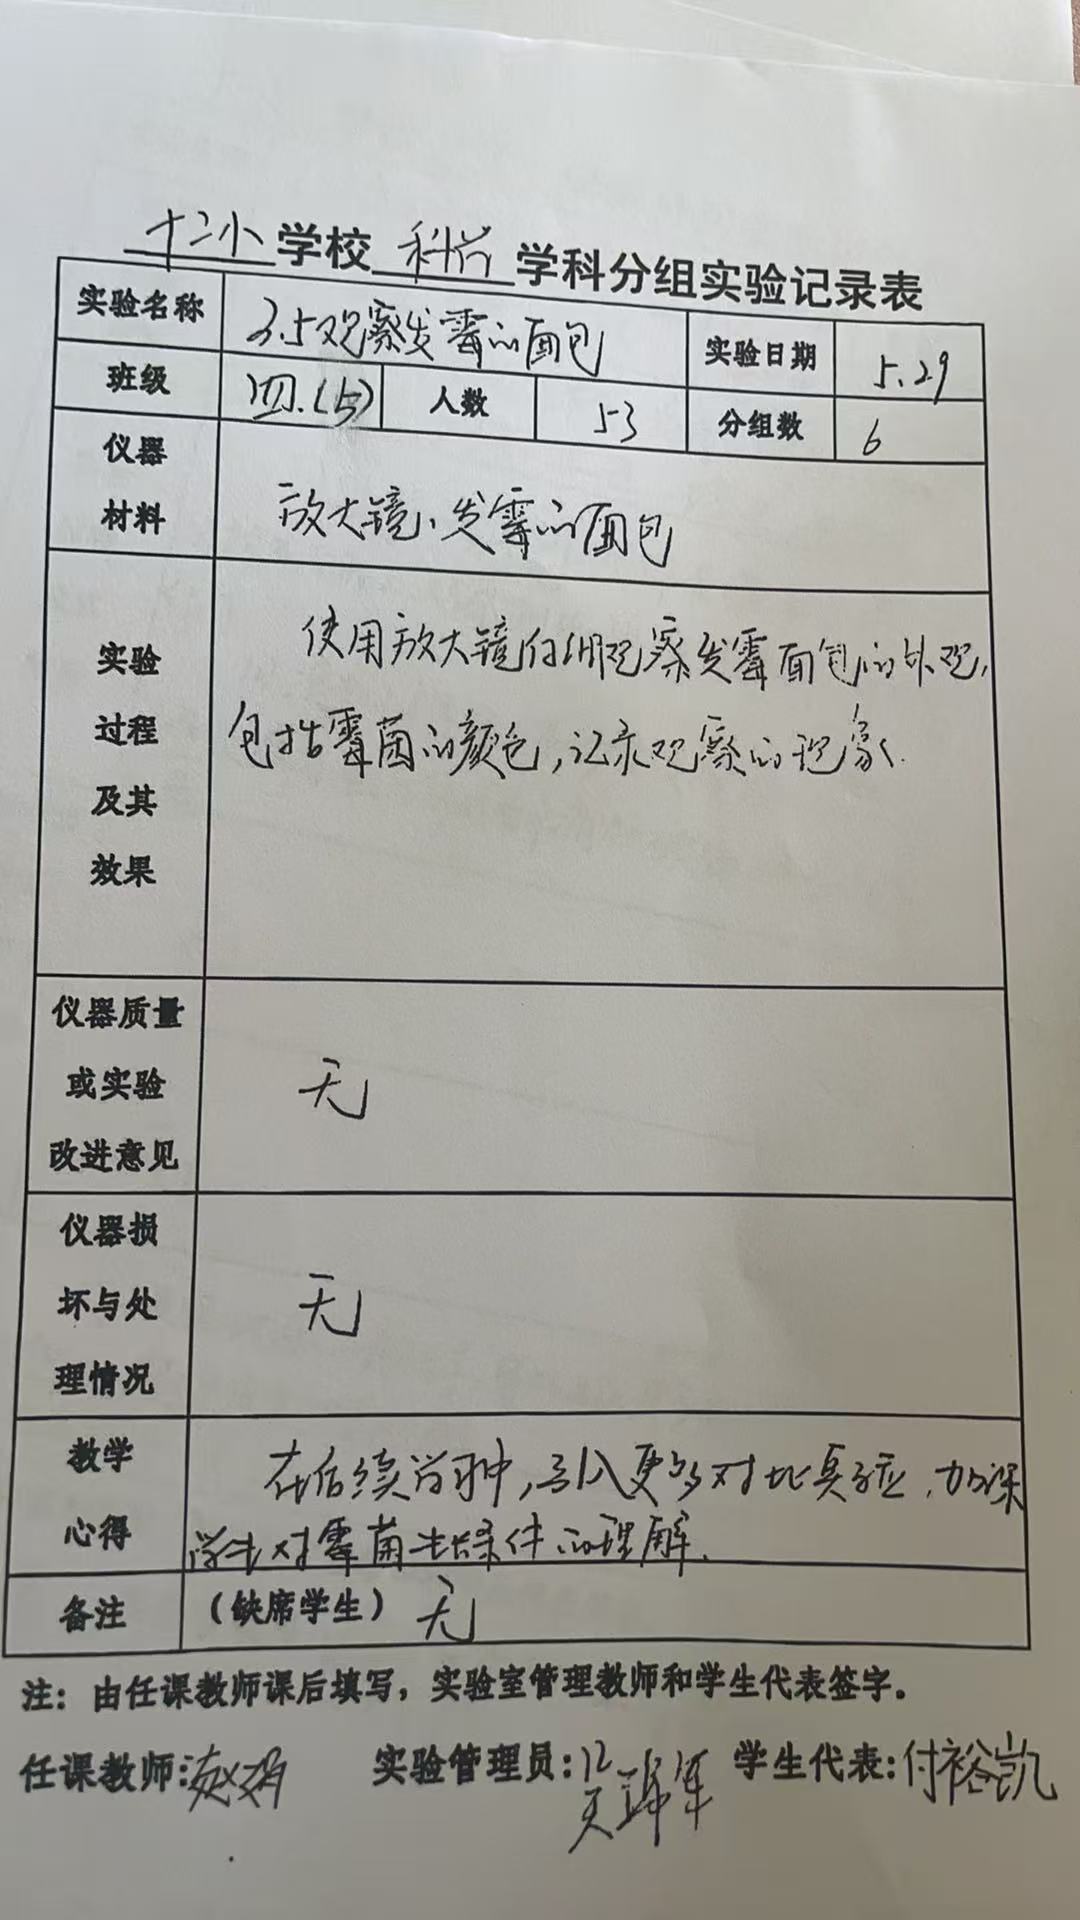 十二小学校 科学 学科分组实验记录表
实验名称 3.5观察发霉的面包 实验日期 5.29
班级 四.(5) 人数 53 分组数 6
仪器
材料
放大镜、发霉的面包
实验
过程
及其
效果
使用放大镜仔细观察发霉面包的外观,
包括霉菌的颜色,记录观察的现象.
仪器质量
或实验
改进意见
无
仪器损
坏与处
理情况
无
教学
心得
在后续学习中,引入更多对比实验,加深
学生对霉菌生长条件的理解.
备注 (缺席学生) 无
注：由任课教师课后填写，实验室管理教师和学生代表签字。
任课教师: 实验管理员: 学生代表:付裕凯